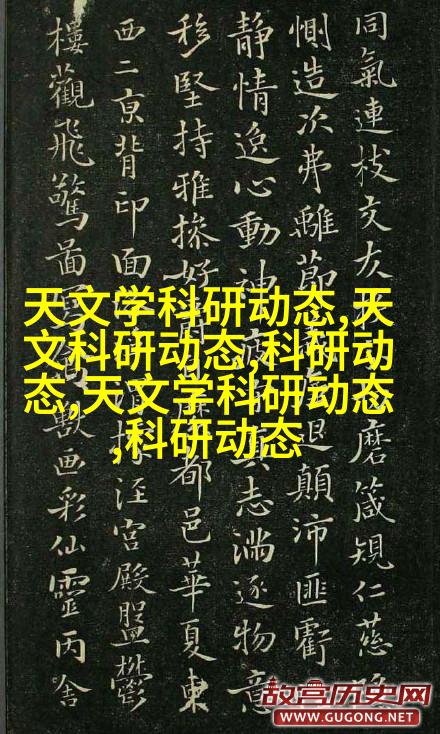 同氣連枝交友磨箴規仁慈隱
惻造次弗離節退顛沛匪虧
靜情逸心動神疲真志滿逐物意
移堅持雅操好縻都邑華夏東
西二亰背邙面涇宮殿盤鬱
樓觀飛驚啚獸畫彩仙靈丙舍
天文学科研动态,天
文科研动态,科研动
态,天文学科研动态
,科研动态
故宫历史网
WWW.GUGONG.NET